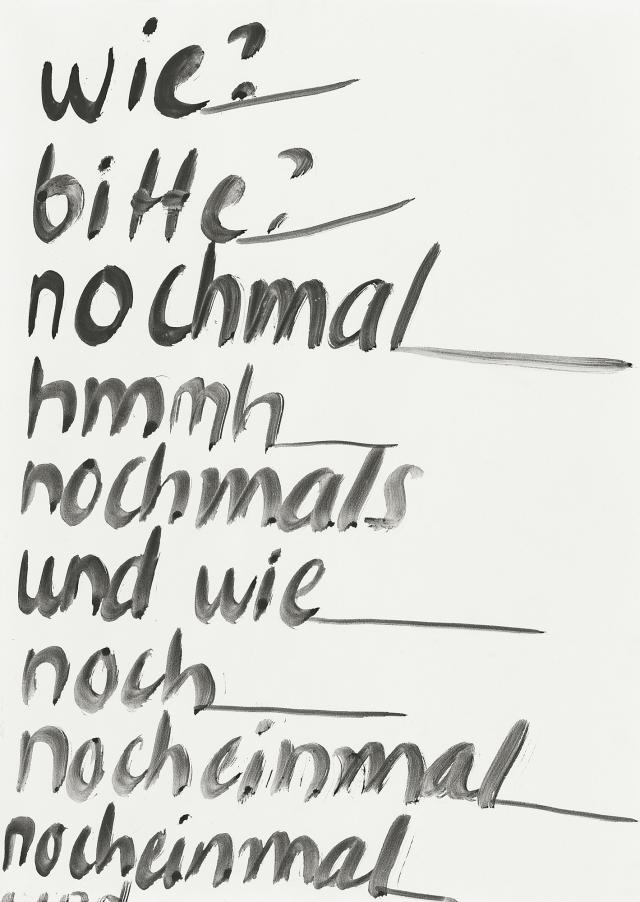 wie?
bitte?
nochmal
hmmh
nochmals
und wie
noch
nocheinmal
nocheinmal
und